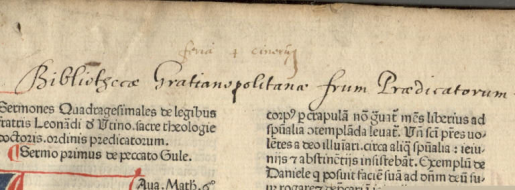 feria 4 cinerũ
Bibliothecæ Gratianopolitanæ frum Prædicatorum
Sermones Quadragesimales de legibus
fratris Leonardi đ Vtino. sacre theologie
doctoris. ordinis predicatorum.
Sermo primus de peccato Gule.
Aua. Math. 6
corpꝰ ꝑ crapulã nõ ꝗuaṫ mẽs liberius ad
spũalia ↄtemplãda leuaṫ. Vñ scĩ pres uo-
lẽtes a deo illuĩari. circa aliq̃ spũalia : ieiu-
nijs ⁊ abstinẽtijs insistebãt. Exemplũ de
Daniele q̃ posuit faciẽ suã ad dñm deũ su-